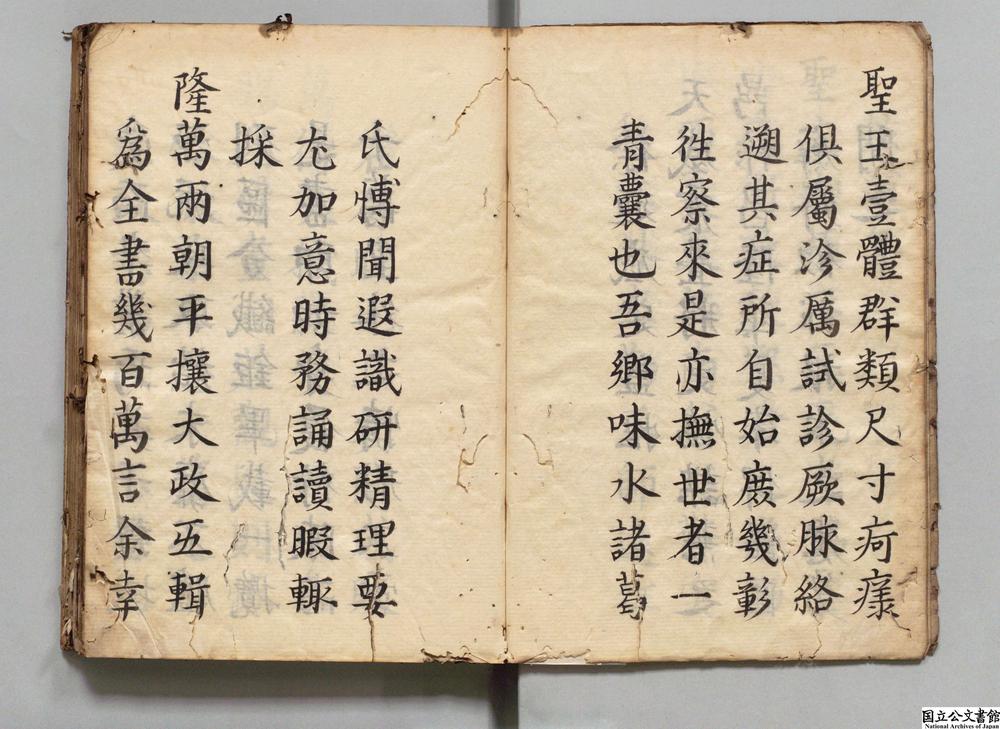 聖王壹體群類尺寸疴癢
俱屬沴厲試診厥脉絡
遡其症所自始庶幾彰
徃察來是亦撫世者一
青囊也吾鄉味水諸葛
氏愽聞遐識硏精理要
尤加意時務誦讀暇輒
採
隆萬兩朝平攘大政五輯
爲全書幾百萬言余幸
国立公文書館
National Archives of Japan